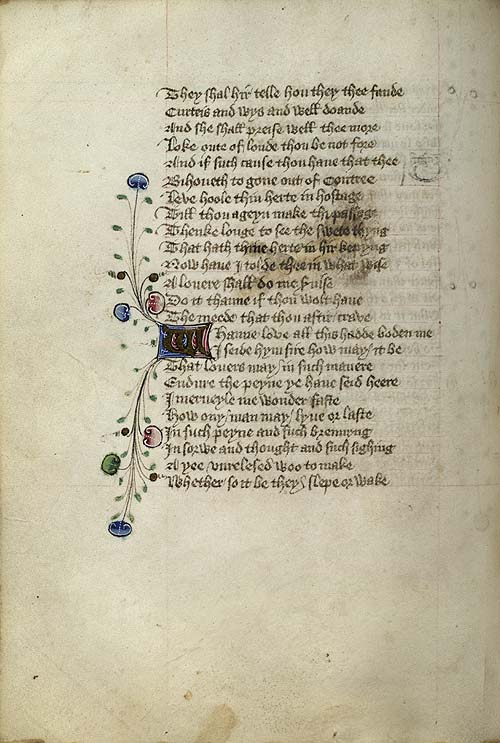 They shal hir telle hou they thee fande
Curteis and wys and well doande
And she shall preise well thee more
Loke oute of londe thou be not fore
And if such cause thou haue that thee
Bihoueth to gone out of Contree
Leve hoole thin herte in hostage
Till thou ageyn make thi passage
Thenke longe to see the swete thyng
That hath thine herte in hir kepyng
Now haue I tolde thee in what wise
A lovere shall do me seruise
Do it thanne if thou wolt haue
The meede that thou aftir crave
Whanne love all this hadde boden me
I seide hym sire how may it be
That lovers may in such manere
Endure the peyne ye haue seid heere
I merueyle me wonder faste
How ony man may lyue or laste
In such peyne and such brennyng
In sorwe and thought and such sighing
A yee unrelesed woo to make
Whether so it be they slepe or wake